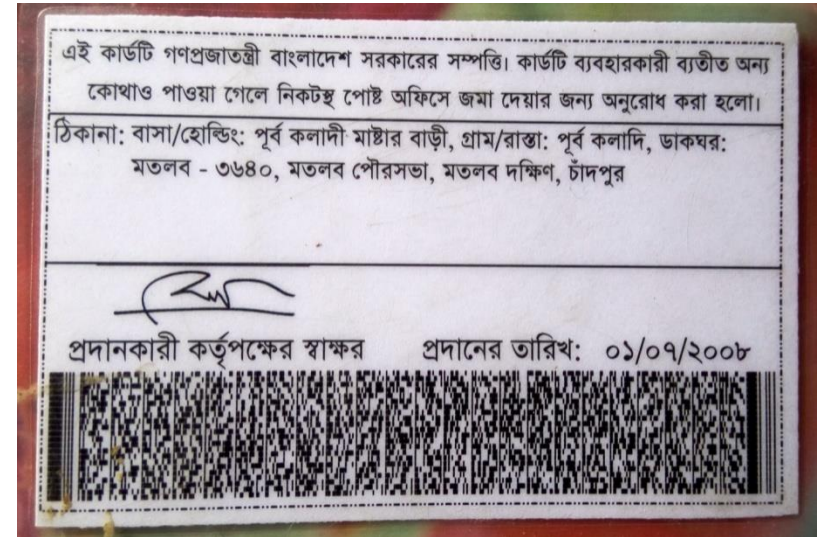 এই কার্ডটি গণপ্রজাতন্ত্রী বাংলাদেশ সরকারের সম্পত্তি। কার্ডটি ব্যবহারকারী ব্যতীত অন্য
কোথাও পাওয়া গেলে নিকটস্থ পোষ্ট অফিসে জমা দেয়ার জন্য অনুরোধ করা হলো।
ঠিকানা: বাসা/হোল্ডিং: পূর্ব কলাদী মাষ্টার বাড়ী, গ্রাম/রাস্তা: পূর্ব কলাদি, ডাকঘর:
মতলব - ৩৬৪০, মতলব পৌরসভা, মতলব দক্ষিণ, চাঁদপুর
প্রদানকারী কর্তৃপক্ষের স্বাক্ষর প্রদানের তারিখ: ০১/০৭/২০০৮